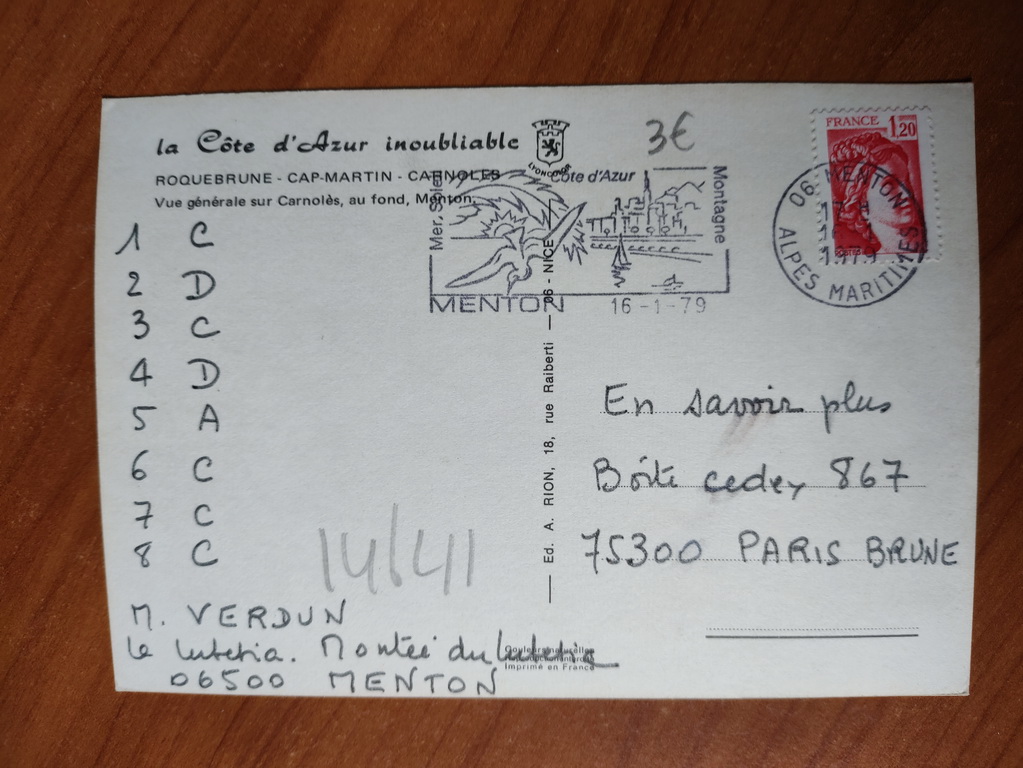 la Côte d'Azur inoubliable
LYONCOLOR
3€
FRANCE 1,20
ROQUEBRUNE - CAP-MARTIN - CARNOLES
Vue générale sur Carnolès, au fond, Menton.
Mer, Soleil
Côte d'Azur
Montagne
MENTON
16-1-79
06 MENTON
ALPES MARITIMES
1 C
2 D
3 C
4 D
5 A
6 C
7 C
8 C
14/41
M. VERDUN
Le Lutetia. Montée du Lutetia
06500 MENTON
Ed. A. RION, 18, rue Raiberti — 06 - NICE
En savoir plus
Boîte cedex 867
75300 PARIS BRUNE
Imprimé en France